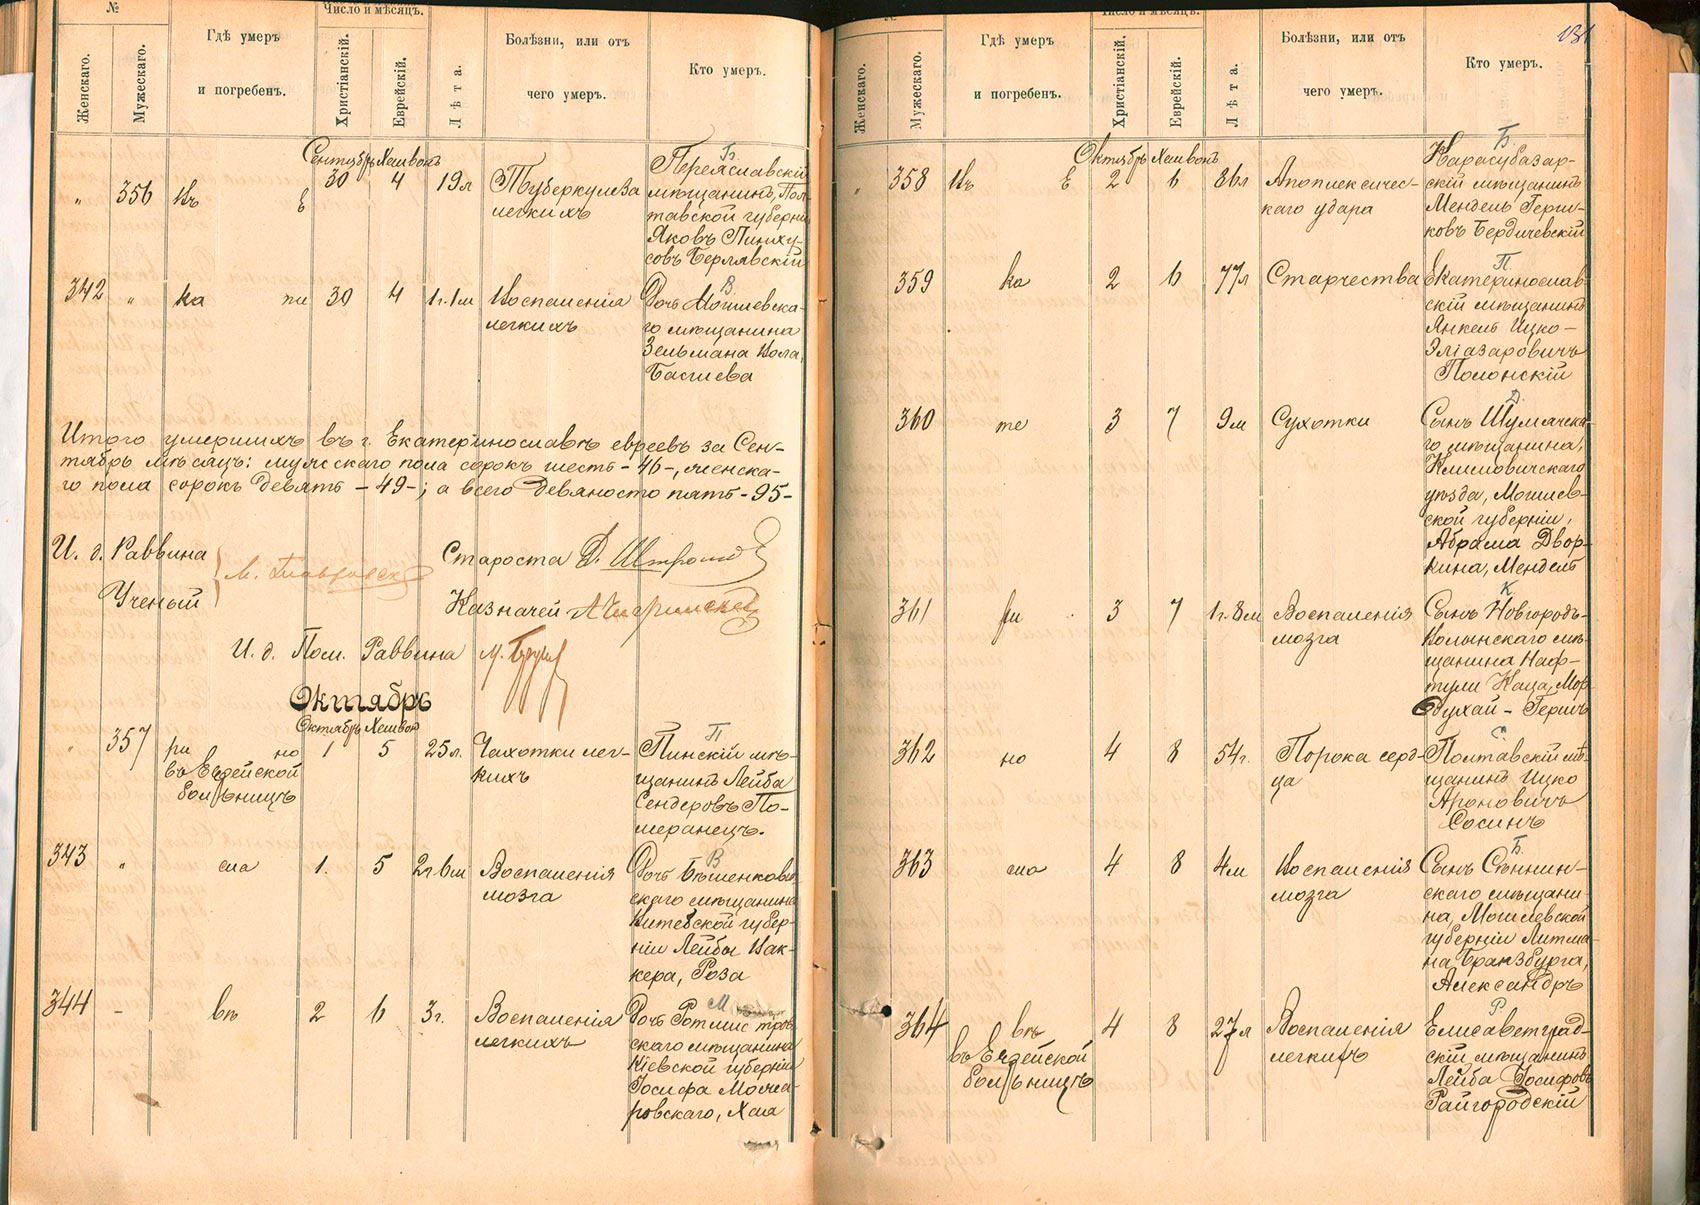 №
Женскаго.
Мужескаго.
Гдѣ умеръ
и погребенъ.
Число и мѣсяцъ.
Христіанскій.
Еврейскій.
Лѣта.
Болѣзни, или отъ
чего умеръ.
Кто умеръ.
Сентябрь Хешвонъ
„ 356 Въ Е 30 4 19л Туберкулеза
легкихъ
Б.
Переяславскій
мѣщанинъ, Пол-
тавской губерніи
Яковъ Пинху-
совъ Берлявскій
342 „ ка 30 4 1г.1м Воспаленія
легкихъ
В.
Дочь Могилевска-
го мѣщанина
Зельмана
Басшева
Итого умершихъ въ г. Екатеринославѣ евреевъ за Сен-
тябрь мѣсяцъ: мужскаго пола сорокъ шесть - 46 -, женска-
го пола сорокъ девять - 49 -; а всего девяносто пять - 95 -
И. д. Раввина
Ученый
Староста
Казначей
И. д. Пом. Раввина
Октябрь
Октябрь Хешвон
„ 357 ри но 1 5 25л. Чахотки лег-
кихъ
въ Еврейской
больницѣ
П
Пинскій мѣ-
щанинъ Лейба
Сендеровъ По-
меранецъ.
343 „ сла 1. 5 2г 6м Воспаленія
мозга
В
Дочь Бѣшенкович
скаго мѣщанина
Витебской губер-
ніи Лейбы Вак-
кера, Роза
344 - вѣ 2 6 3г. Воспаленія
легкихъ
М.
Дочь Ротмистров
скаго мѣщанина
Кіевской губерніи
Іосифа Можа-
ровскаго, Хая
131
№
Женскаго.
Мужескаго.
Гдѣ умеръ
и погребенъ.
Число и мѣсяцъ.
Христіанскій.
Еврейскій.
Лѣта.
Болѣзни, или отъ
чего умеръ.
Кто умеръ.
Октябрь Хешвонъ
„ 358 Въ Е 2 6 86л Апоплексичес-
каго удара
Б.
Карасубазар-
скій мѣщанинъ
Мендель Герш-
ковъ Бердичевскій
359 ка 2 6 77л Старчества
П.
Екатеринослав-
скій мѣщанинъ
Янкель Ицко-
Эліазаровичъ
Полонскій
360 те 3 7 9м Сухотки
Д.
Сынъ Шумячска-
го мѣщанина,
Климовичскаго
уѣзда, Могилев-
ской губерніи,
Абрама Двор-
кина, Мендель
361 ри 3 7 1г.8м Воспаленія
мозга
К
Сынъ Новгородъ-
Волынскаго мѣ-
щанина Наф-
тули Каца, Мор
духай - Гершъ
362 но 4 8 54г. Порока серд-
ца
С.
Полтавскій мѣ-
щанинъ Ицко
Ароновичъ
Сосинъ
363 сла 4 8 4м Воспаленія
мозга
Б.
Сынъ Сѣннин-
скаго мѣщани-
на, Могилевской
губерніи Литма-
на Бранзбурга,
Александръ
364 вѣ 4 8 27л Воспаленія
легкихъ
въ Еврейской
больницѣ
Р.
Елисаветград-
скій мѣщанинъ
Лейба Іосифовъ
Райгородскій